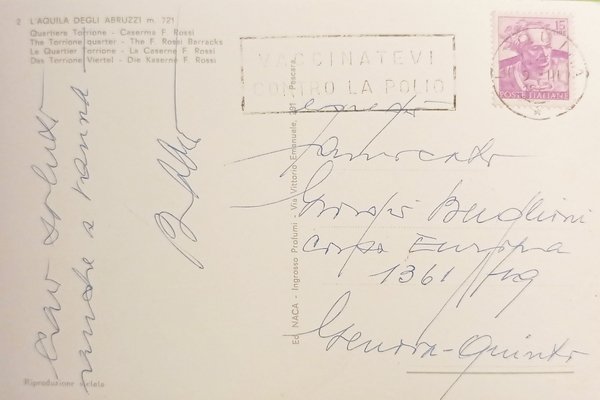 2 L'AQUILA DEGLI ABRUZZI m. 721
Quartiere Torrione - Caserma F. Rossi
The Torrione quarter - The F. Rossi Barracks
Le Quartier Torrione - La Caserne F. Rossi
Das Torrione Viertel - Die Kaserne F. Rossi
VACCINATEVI
CONTRO LA POLIO
15
POSTE ITALIANE
Cari saluti
anche a nonna
Ed. NACA - Ingrosso Profumi - Via Vittorio Emanuele, 291 - Pescara
Corso Europa
1361
Genova-Quinto
Riproduzione vietata